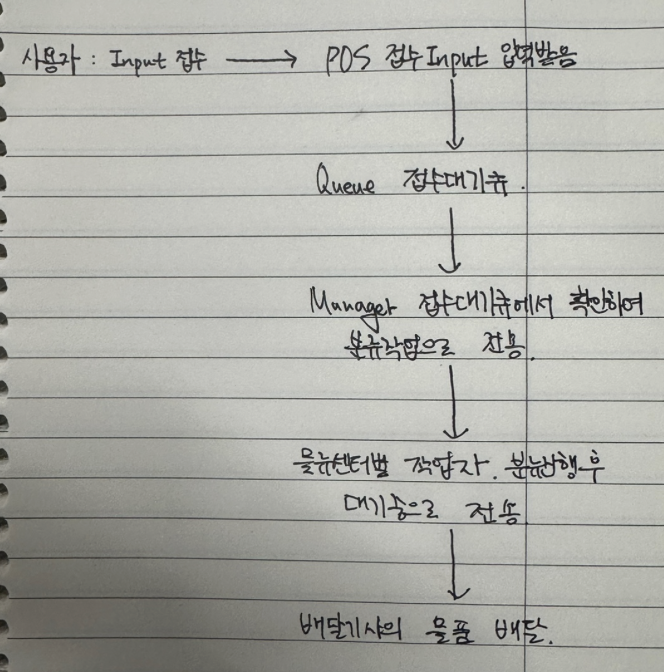 사용자 : Input 접수 → POS 접수 Input 입력받음
Queue 접수대기큐.
Manager 접수대기큐에서 확인하여
분류작업으로 전송.
물류센터별 작업자. 분류산행후
대기중으로 전송
배달기사의 물품 배달.